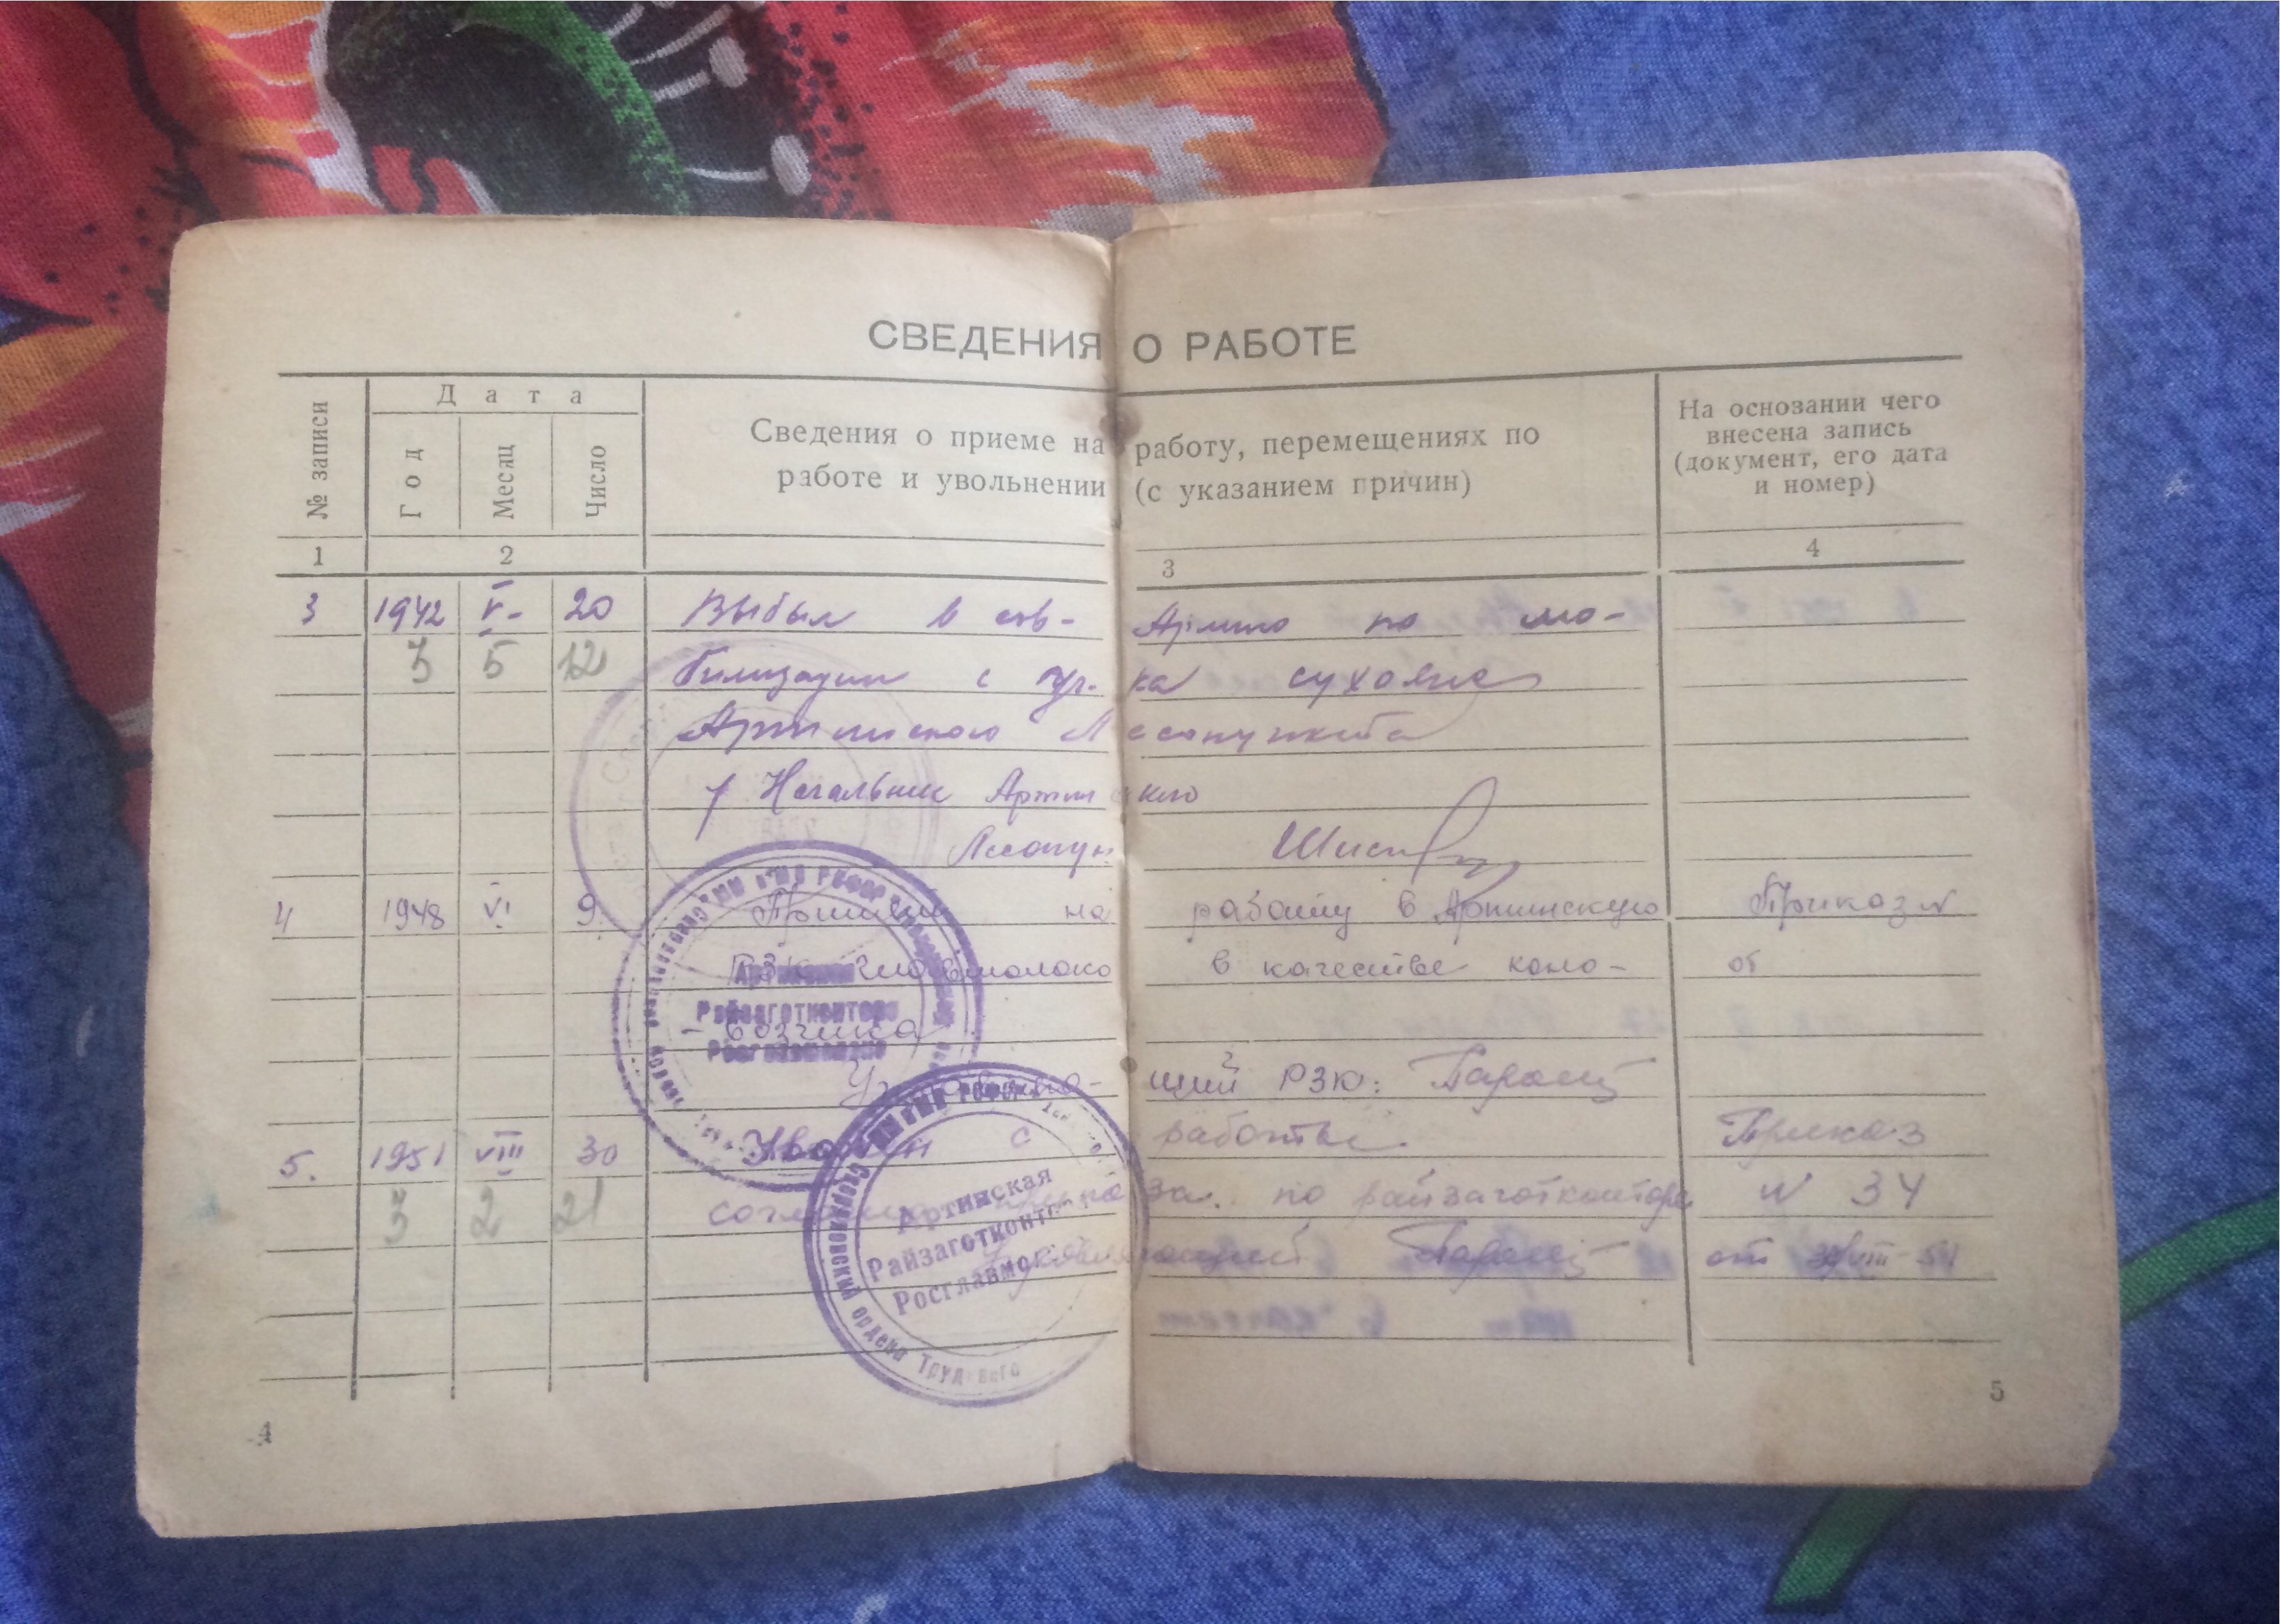 СВЕДЕНИЯ О РАБОТЕ
№ записи
Дата
Год
Месяц
Число
Сведения о приеме на работу, перемещениях по
работе и увольнении (с указанием причин)
На основании чего
внесена запись
(документ, его дата
и номер)
1 2 3 4
3 1942 V- 20 Выбыл в сов- Армию по мо-
3 5 12 билизации с уч-ка
Артинского Лесопункта
Начальник Артинского
Лесопун
4 1948 VI 9. Принят на работу в Артинскую Приказ N
РЗК Главмолоко в качестве коно- от
- возчика
Управляю- щий РЗК:
5. 1951 VIII 30 Уволен с работы. Приказ
3 2 21 согласно приказа. по райзаготконторе N 34
Управляющий от 30/VIII-51
Артинская
Райзаготконтора
Росглавмолоко
Артинская
Райзаготконтора
Росглавмолоко
Свердловский ордена Трудового
4
5